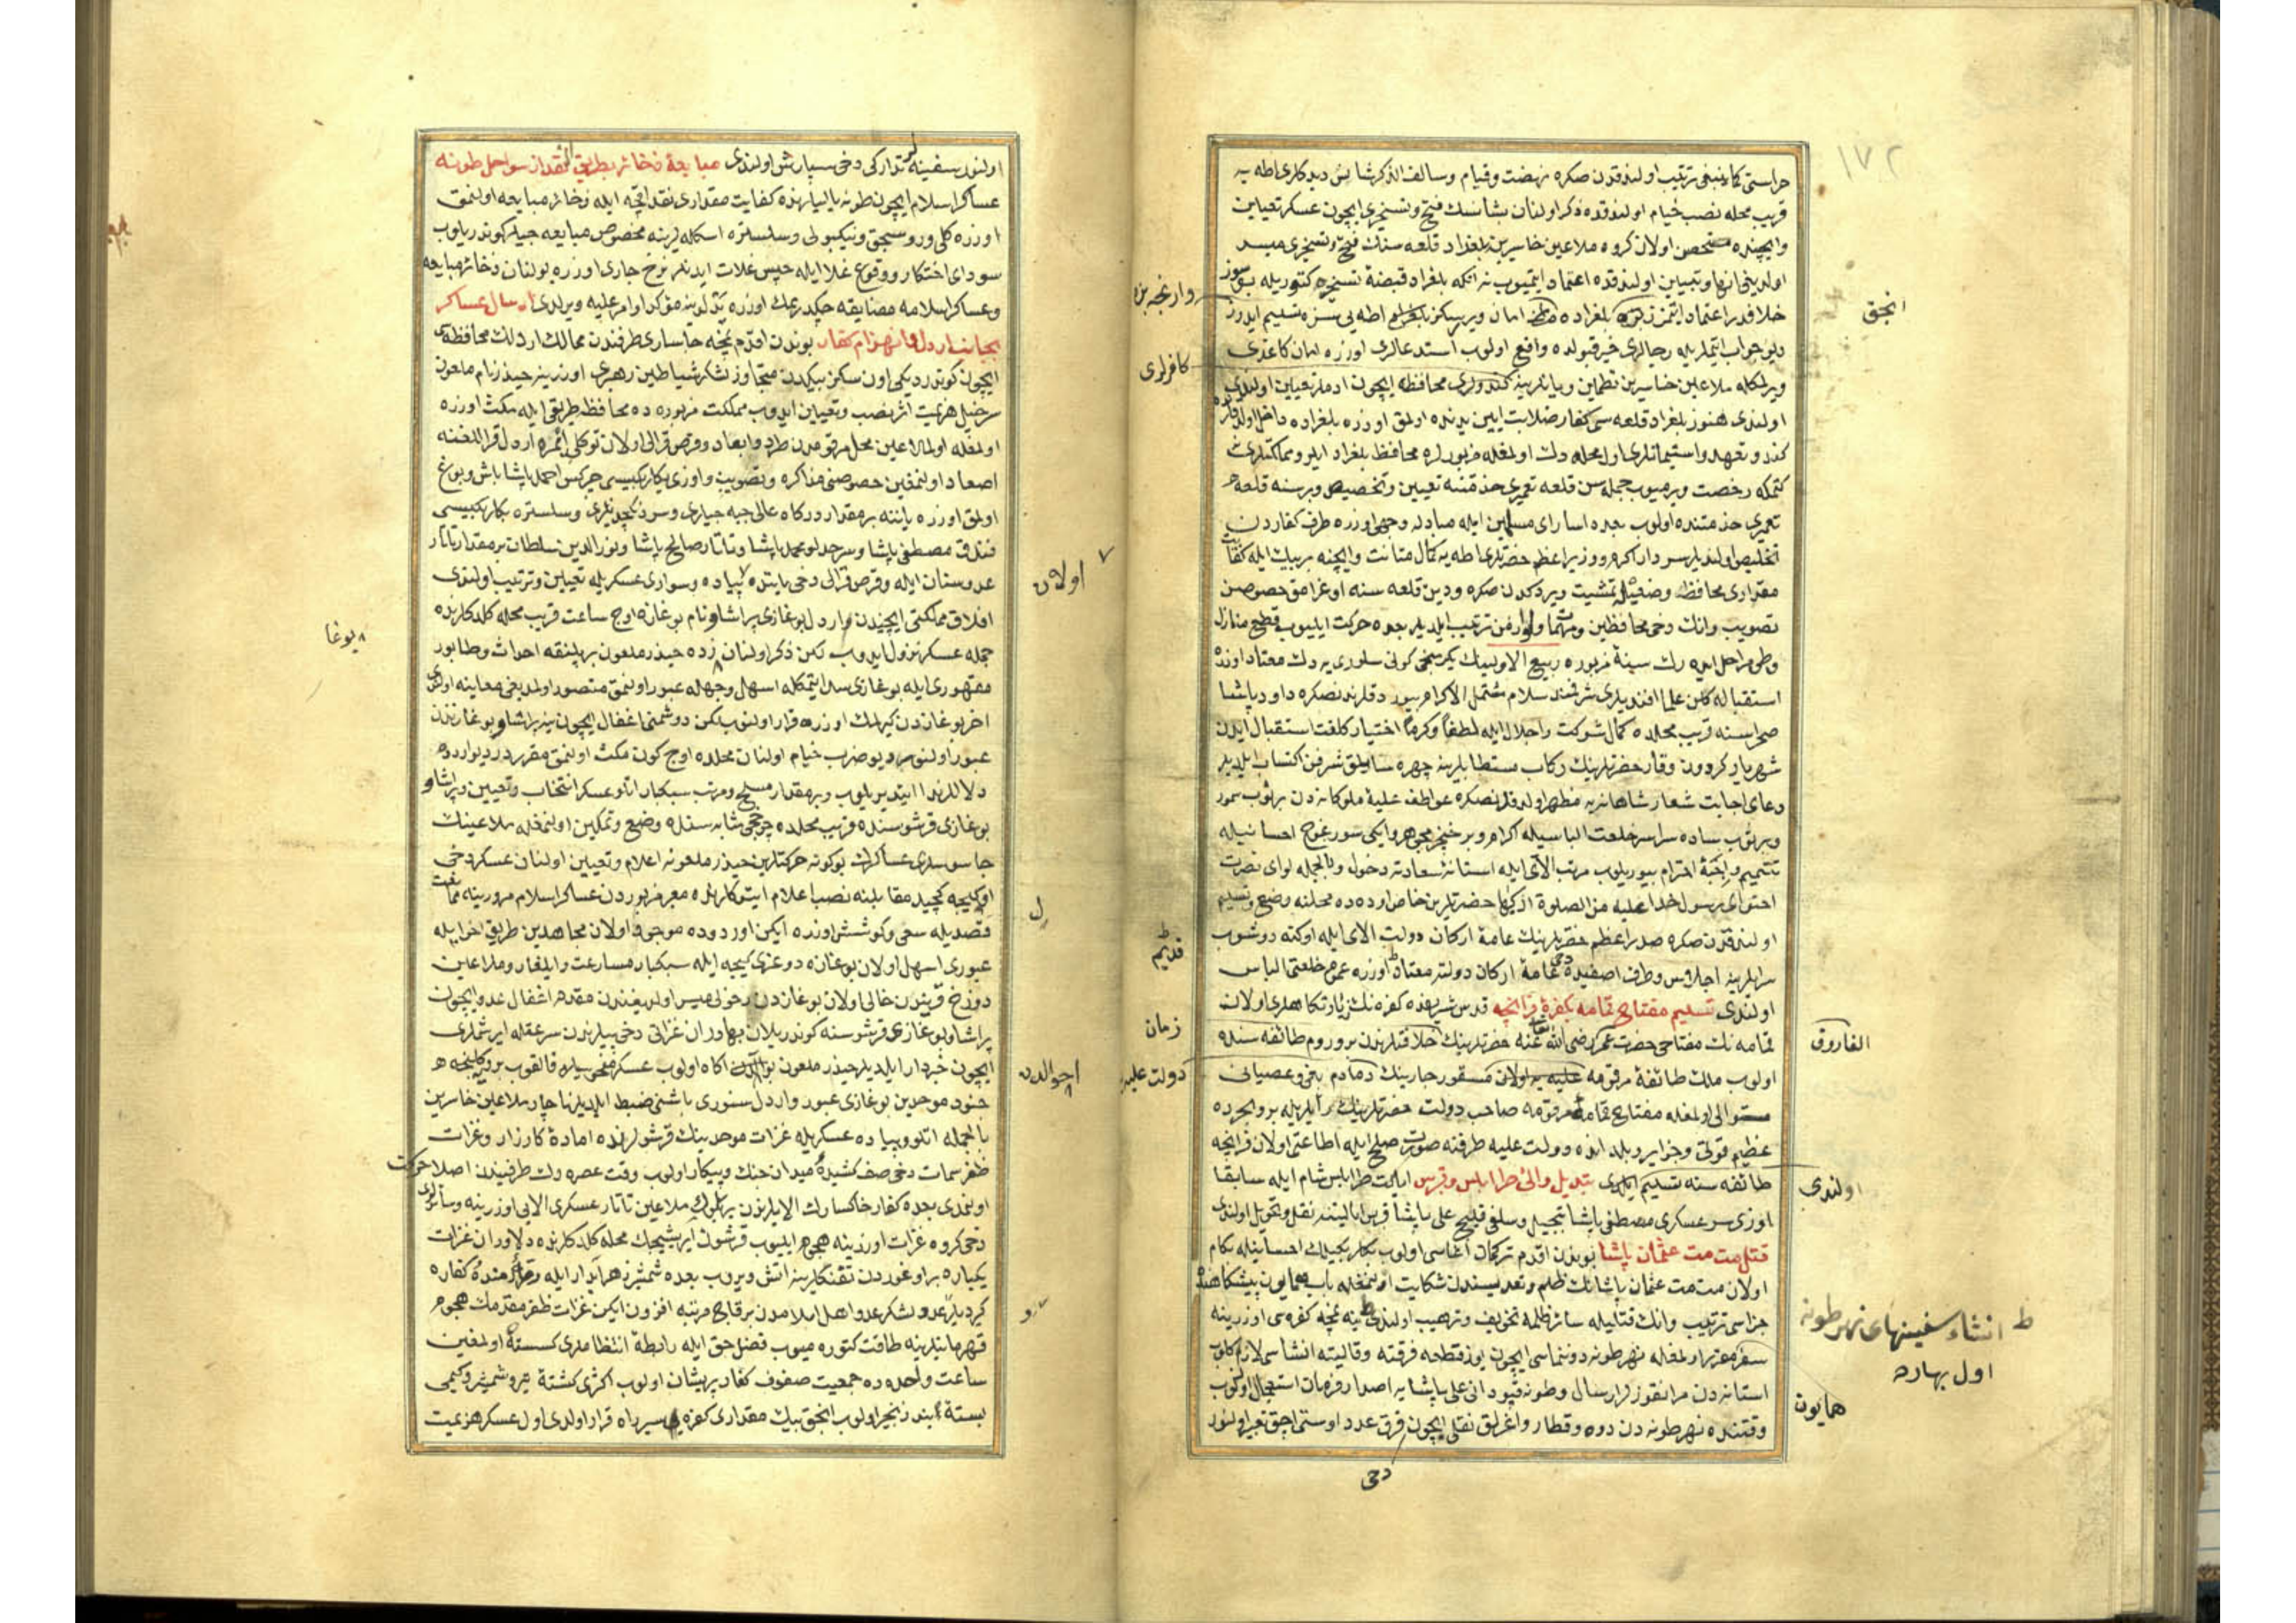 ١٧٢
حراستی کما ینبغی ترتیب اولندقدن صکره نهضت وقیام وسالف الذکر شانس دیدکلری اطه یه
قریب محله نصب خیام اولندقده ذکر اولنان شانسک فتح وتسخیری ایچون عسکر تعیین
وایچنده متحصن اولان کروه ملاعین خاسرینه بلغراد قلعه سنک فتح وتسخیری میسر
اولدیغی انها وتبیین اولندقده اعتماد ایتمیوب
خلافدر اعتماد ایتمزز بلغراده امان ویررسکز اطه یی سزه تسلیم ایدرز
دیو جواب ایتملریله رجالری خیر قبولده واقع اولوب استدعالری اوزره امان کاغدی
ویرلمکله ملاعین خاسرین تطمین ویانلرینه کندولری محافظه ایچون ادملر تعیین اولندی
اولندی هنوز بلغراد قلعه سی کفار ضلالت ایین یدنده اولمق اوزره بلغراده داخل
کندو تعهد واستیمانلری اول محله دک اولمغله مزبورلره محافظ بلغراد ایلرو مملکتلرینه
کتمکه رخصت ویرمیوب جمله سن قلعه تعمیری خدمتنه تعیین وتخصیص وبر سنه قلعه
تعمیری خدمتنده اولوب بعده اسارای مسلمین ایله مبادله وجهی اوزره طرف کفاردن
تخلیص اولندیلر سردار اکرم ووزیر اعظم حضرتلری اطه یه کمال متانت وایچنه بر بیک ایله کفایت
مقداری محافظه وضعیله تمشیت ویردکدن صکره ودین قلعه سنه اوغرامق خصوصن
تصویب وانک دخی محافظین ومهمات ولوازمن ترتیب ایلدیلر بعده حرکت ایلیوب قطع منازل
وطی مراحل ایده رک سنهٔ مزبوره ربیع الاولینک یکرمنجی کونی سلوری یه دک معتاد اوزره
استقباله کلن علما افندیلری شرفنده سلام مشتمل الاکرام بیوردقلرندنصکره داود پاشا
صحراسنه قریب محلده کمال شوکت واجلال ایله لطفاً وکرماً اختیار کلفت استقبال ایدن
شهریار کردون وقار حضرتلرینک رکاب مستطابلرینه چهره سایلق شرفن اکتساب ایلدیلر
دعای اجابت شعار شاهانه یه مظهر اولدقلرندنصکره عواطف علیهٔ ملوکانه دن بر ثوب سمور
وبر ثوب ساده سراسر خلعت الباسیله اکرام وبر خنجر مجوهر وایکی سورغوج احسانیله
تتمیم احترام بیوریلوب مرتب الای ایله استانهٔ سعادته دخول وبالجمله لوای نصرت
احتوای رسول خدا علیه من الصلوة ازکیها حضرتلرین خاص اوده ده محلنه وضع وتسلیم
اولندقدن صکره صدر اعظم حضرتلرینک عامهٔ ارکان دولت الای ایله اوکنه دوشوب
سرایلرینه اجلاس وطرف اصفیدن دخی عامهٔ ارکان دولته معتاد اوزره عموم خلعتها الباس
اولندی تسلیم مفتاح قمامه بکفرهٔ فرانچه قدس شریفده کفره نک زیارتکاهلری اولان
قمامه نک مفتاحی حضرت عمر رضی الله عنه حضرتلرینک خلافتلرندن برو روم طائفه سنده
اولوب ملک طائفهٔ مرقومه علیه یه اولان مسقو چارینک دمادم بغی وعصیانی
متوالی اولمغله مفتاح قمامهٔ مرقومه صاحب دولت حضرتلرینک رأیلریله بر وجرده
عظیم قوتی وجزایر دولت علیه طرفنه صورت صلح ایله اطاعتی اولان فرانچه
طائفه سنه تسلیم ایلدی تبدیل والئ طرابلس وقبرس ایالت طرابلس شام ایله سابقا
اوزی سرعسکری مصطفی پاشا تبجیل وسلفی قلیچ علی پاشا قبرس ایالتنه نقل وتحویل اولندی
قتل مت مت عثمان پاشا بوندن اقدم ترکمان اغاسی اولوب بکلربکیلک احسانیله بکام
اولان مت مت عثمان پاشانک ظلم وتعدیسندن شکایت اولنمغله باب همایون پیشکاهنده
جزاسی ترتیب وانک قتلیله سائر ظلمه تخویف وترهیب اولندی ینه نمچه کفره سی اوزرینه
سفر مقرر اولمغله نهر طونه دوننماسی ایچون یوز قطعه فرقته وقالیته انشاسی لازم کلوب
استانه دن مرانقوزلر ارسال وطونه قپودانی علی پاشایه اصدار فرمان استعجال اولنوب
وقتنده نهر طونه دن دوه وقطار واغرلق نقلی ایچون قرق عدد اوستی اچق تعبیر اولنور
انجق
وار نمچه بزه
کافرلری
قدیم
زمان
دولت علیه
الفاروق
اولندی
ط انشاء سفینهای نهر طونه
اول بهاره
همایون
دخی
اولنور سفینه لر تدارکی دخی سپارش اولندی مبایعهٔ ذخائر بطریق النقد از سواحل طونه
عساکر اسلام ایچون طونه یالیلرنده کفایت مقداری نقد اقچه ایله ذخائر مبایعه اولنمق
اوزره کلی وروسچق ونیکبولی وسلستره اسکله لرینه مخصوص مبایعه جیلر کوندریلوب
سودای احتکار ووقوع غلا ایله حبس غلات ایدنلر نرخ جاری اوزره بولنان ذخائر مبایعه
وعساکر اسلامه مضایقه چکدرمک اوزره یدلرینه مؤکد اوامر علیه ویرلدی ارسال عساکر
بجانب اردل وانهزام کفار بوندن اقدم نمچه چاساری طرفندن ممالک اردلک محافظه سی
ایچون کوندردیکی اون سکز بیکدن متجاوز لشکر شیاطین رهبری اوزرینه حیدر نام ملعون
سرخیل هزیمت اثر نصب وتعیین ایدوب مملکت مزبوره ده محافظه طریقی ایله مکث اوزره
اولمغله اول ملاعین محل مرقومدن طرد وابعاد وقرص قرالی اولان توکلی ائمره اردل قراللغنه
اصعاد اولنمغین خصوصنی مذاکره وتصویب واوزی بکلربکیسی چرکس احمد پاشا باش وبوغ
اولمق اوزره یاننه بر مقدار درکاه عالی جبه جیلری وسردنکچدیلری وسلستره بکلربکیسی
فندق مصطفی پاشا وسرحدلو محمد پاشا وتاتار صالح پاشا ونور الدین سلطان بر مقدار تاتار
عدوستان ایله وقرص قرالی دخی یاننده پیاده وسواری عسکریله تعیین وترتیب اولندی
افلاق مملکتی ایچندن وارد ل بوغازی پراشاو نام بوغازه اوچ ساعت قریب محله کلدکلرنده
جمله عسکر نزول ایدوب لکن ذکر اولنان زده حیدر ملعون بر پلنقه احداث وطابور
مقهوری ایله بوغازی سد ایتمکله اسهل وجهله عبور اولنمق متصور اولمدیغی معاینه اولندی
اخر بوغازدن کیرلمک اوزره قرار اولنوب لکن دوشمنی اغفال ایچون ینه پراشاو بوغازندن
عبور اولنور دیو ضرب خیام اولنان محلده اوچ کون مکث اولنمق مقرردر دیو اردوده
دلاللر ندا ایتدیریلوب وبر مقدار مسلح ومرتب سبکبار اتلو عسکر انتخاب وتعیین وپراشاو
بوغازی قرشوسنده قریب محلده چرخجی مثابه سنده وضع وتمکین اولنمغله ملاعینک
جاسوسلری عساکرک بو کونه حرکتلرین حیدر ملعونه اعلام وتعیین اولنان عسکر دخی
مقابلنه نصب اعلام ایتدکلرنده معبر مزبوردن عساکر اسلام مرورینه ممانعت
قصدیله سعی وکوشش اوزره ایکن اوردوده موجود اولان مجاهدین طریق اخر ایله
عبوری اسهل اولان بوغازه دوغری کیجه ایله سبکبار مسارعت وایلغار وملاعین
دوزخ قریندن خالی اولان بوغازدن دخولی میسر اولدیغندن مقدم اغفال عدو ایچون
پراشاو بوغازی قرشوسنه کوندریلان بهادران غزاتی دخی پیلرندن سر عقله ایرشملری
ایچون خبردار ایلدیلر حیدر ملعون اکاه اولوب عسکر منحوسیله قالقوب
جنود موحدین بوغازی عبور واردل سنوری باشنی ضبط ایلدیلر ناچار ملاعین خاسرین
بالجمله اتلو وپیاده عسکریله غزات موحدینک قرشولرنده امادهٔ کارزار وغزات
ظفر سمات دخی صف کشیدهٔ میدان جنک وپیکار اولوب وقت عصره دک طرفیندن اصلا حرکت
اولنمدی بعده کفار خاکسارک الایلرندن بر بلوک ملاعین تاتار عسکری الایی اوزرینه وسائرلری
دخی کروه غزات اوزرینه هجوم ایلیوب قرشون ایریشیجک محله کلدکلرنده دلاوران غزات
یکباره بر اوغوردن تفنکلرینه اتش ویروب بعده شمشیر زهر ابدار ایله کفاره
کیردیلر عدو لشکر عدو اهل اسلامدن بر قاچ مرتبه افزون ایکن غزات ظفر مقدمک هجوم
قهرمانیلرینه طاقت کتوره میوب فضل حق ایله رابطهٔ انتظاملری کسسته اولمغین
ساعت واحده ده جمعیت صفوف کفار پریشان اولوب اکثری کشتهٔ تیر وشمشیر وکیمی
بستهٔ بند زنجیر اولوب انجق بیک مقداری کفره سیر راه قرار اولدی اول عسکر هزیمت
اولان
بوغا
ل
احوالدن